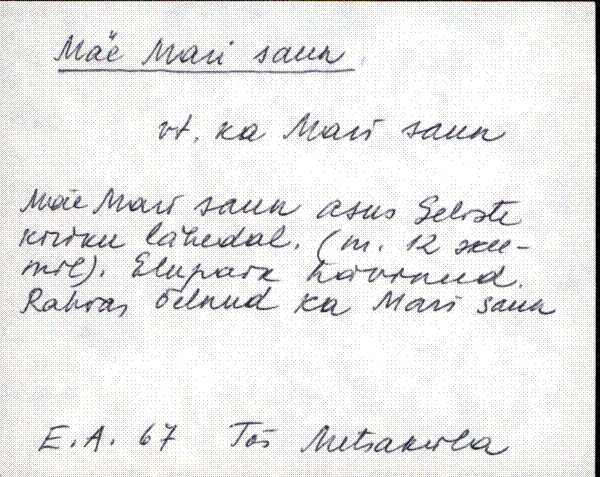 Mäe Mari saun
vt. ka Mari saun
Mäe Mari saun asus Seliste
kiriku lähedal. (m. 12 skee-
mil). Elupaik hävinud.
Rahvas öelnud ka Mari saun
E.A. 67 Tõs Metsaküla